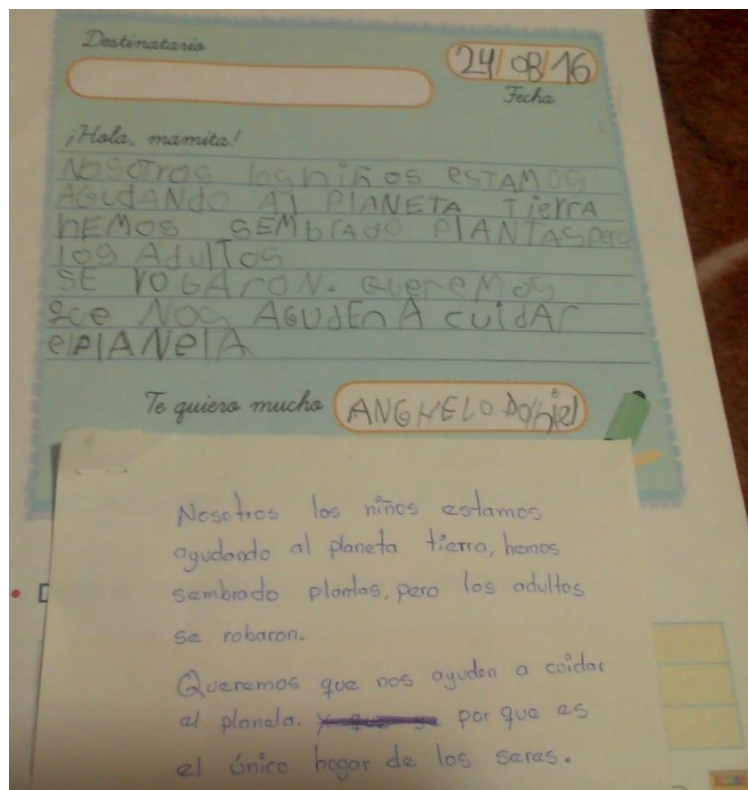 Destinatario
24/08/16
Fecha
¡Hola, mamita!
NOSOTROS los niños ESTAMOS
AGUDANdO Al PlANETA Tierra
hEMOS SEMbrAdO PlANTAS pero
los AdulTos
SE robAroN. QuereMos
que Nos AGUdEn A cuidAr
elPlANeTA
Te quiero mucho ANGHELO DAniel
Nosotros los niños estamos
agudando al planeta tierra, hemos
sembrado plantas, pero los adultos
se robaron.
Queremos que nos aguden a cuidar
el planeta. por que es
el único hogar de los seres.